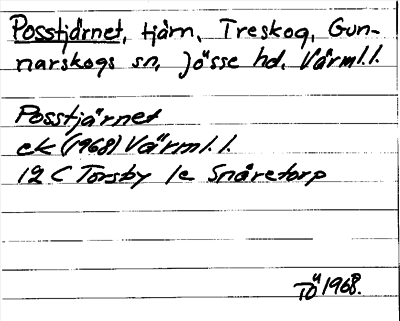 Posstjärnet, tjärn, Treskog, Gun-
narskogs sn, Jösse hd, Värml.l.
Posstjärnet
ek (1968) Värml.l.
12 C Torsby 1e Snåretorp
TÖ 1968.